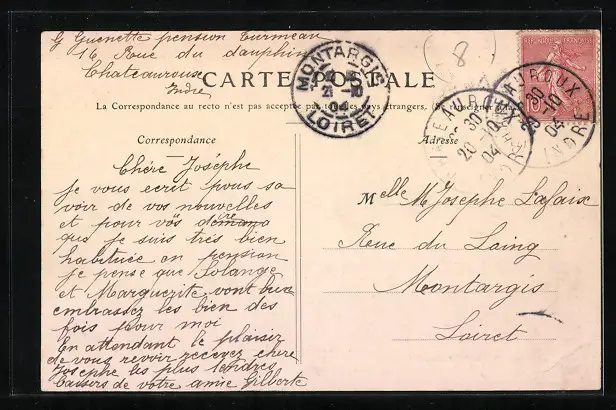 G Guenette pension Turmeau
16 Rue du dauphin
Chateauroux
Indre
CARTE POSTALE
La Correspondance au recto n'est pas acceptée par tous les pays étrangers. (Se renseigner
Correspondance
Adresse
8
MONTARGIS
21 -10
04
LOIRET
CHATEAUROUX
20 -10
04
INDRE
CHATEAUROUX
20 -10
04
INDRE
Chère Josephe
je vous ecrit pous sa
voir de vos nouvelles
et pour vos dire
que je suis très bien
habituée en pension
je pense que Solange
et Marguerite vont bien
embrassez les bien des
fois pour moi
En attendant le plaisir
de vous revoir recevez chere
Josephe les plus tendres
baisers de votre amie Gilberte
Melle M Josephe Lafaix
Rue du Loing
Montargis
Loiret